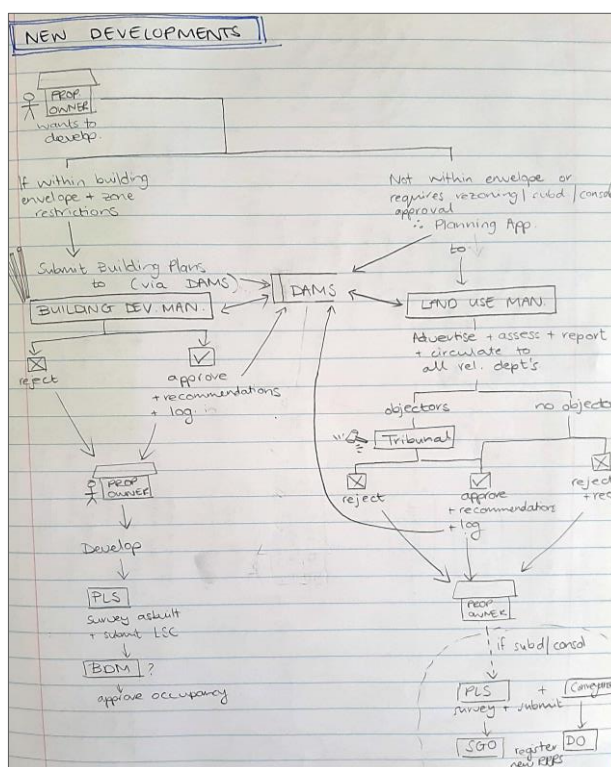 NEW DEVELOPMENTS
PROP.
OWNER
wants to
develop.
If within building
envelope + zone
restrictions
Not within envelope or
requires rezoning / subd / consol
approval
∴ Planning App.
to
Submit Building Plans
to (via DAMS)
DAMS
BUILDING DEV. MAN.
LAND USE MAN.
Advertise + assess + report
+ circulate to
all rel. dept's
reject
approve
+ recommendations
+ log
objectors
no object
Tribunal
reject
approve
+ recommendations
+ log
reject
+ rec
PROP
OWNER
Develop
PLS
survey asbuilt
+ submit LSC
BDM ?
approve occupancy
PROP
OWNER
if subd / consol
PLS + Conveyan
survey + submit
SGO register DO
new